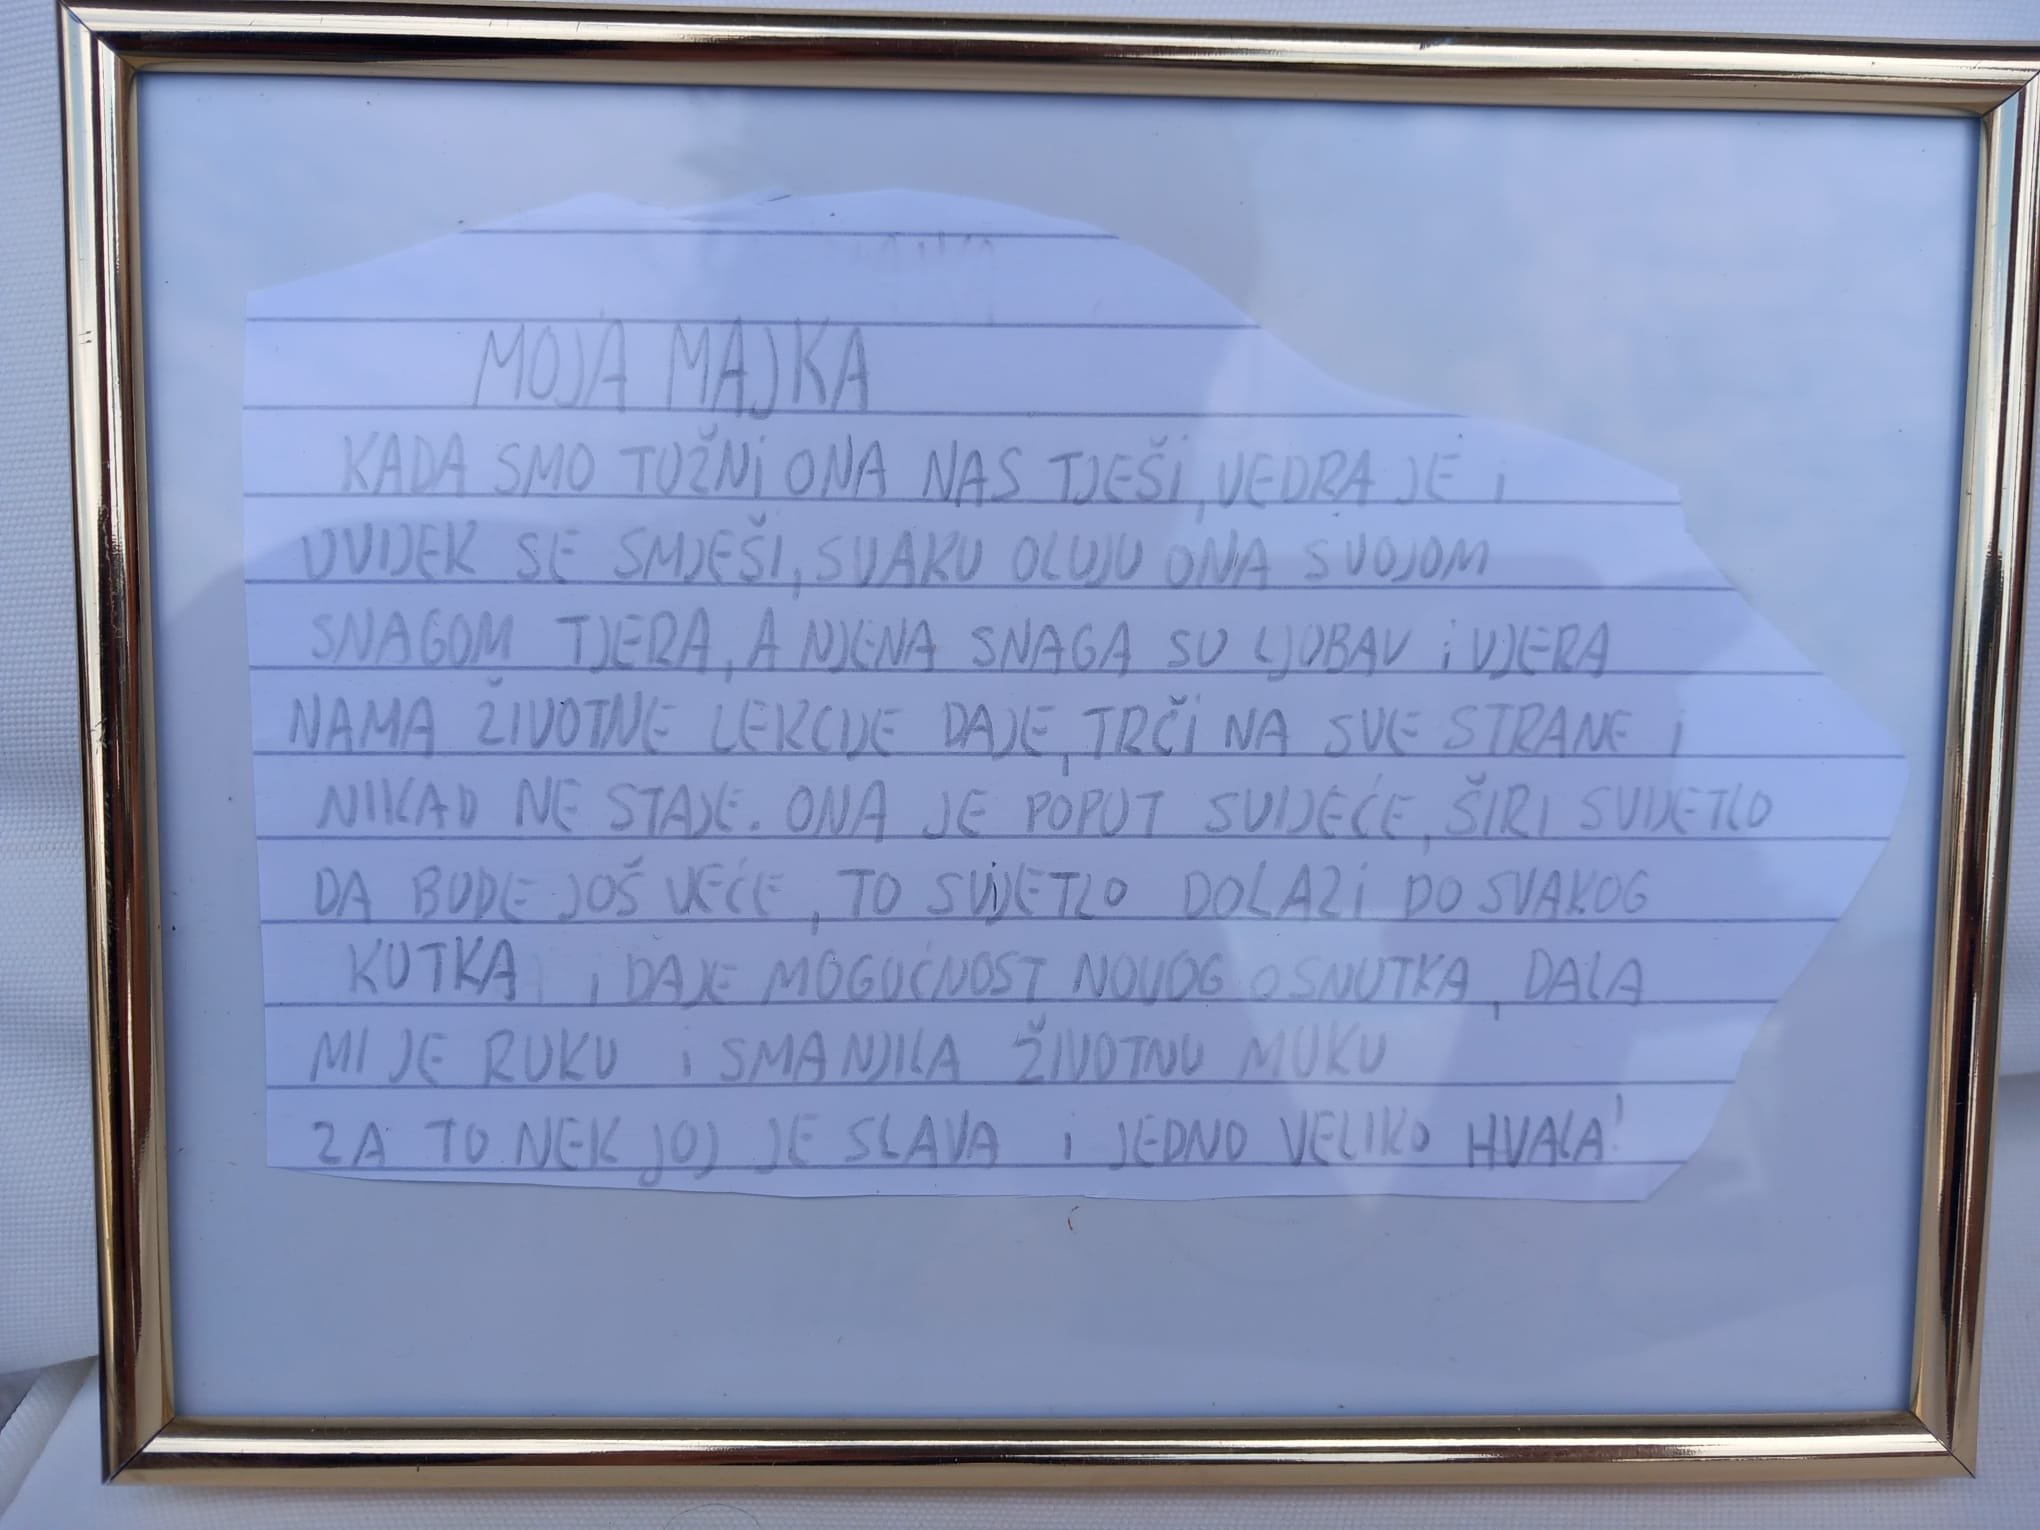 MOJA MAJKA
KADA SMO TUŽNI ONA NAS TJEŠI, VEDRA JE I
UVIJEK SE SMJEŠI, SVAKU OLUJU ONA SVOJOM
SNAGOM TJERA, A NJENA SNAGA SU LJUBAV I VJERA
NAMA ŽIVOTNE LEKCIJE DAJE, TRČI NA SVE STRANE I
NIKAD NE STAJE. ONA JE POPUT SVIJEĆE, ŠIRI SVIJETLO
DA BUDE JOŠ VEĆE, TO SVIJETLO DOLAZI DO SVAKOG
KUTKA I DAJE MOGUĆNOST NOVOG OSNUTKA, DALA
MI JE RUKU I SMANJILA ŽIVOTNU MUKU
ZA TO NEK JOJ JE SLAVA I JEDNO VELIKO HVALA!